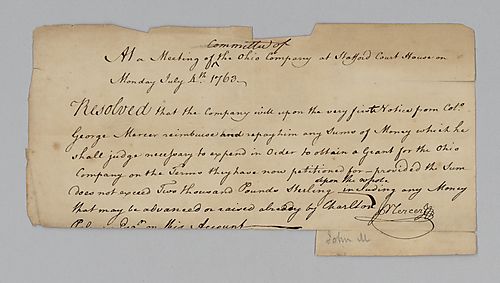 Committee of
At a Meeting of ^ the Ohio Company at Stafford Court House on
Monday July 4th. 1763.
Resolved that the Company will upon the very first Notice from Colo.
George Mercer reimburse and repay him any Sums of Money which he
shall judge necessary to expend in Order to obtain a Grant for the Ohio
Company on the Terms they have now petitioned for provided the Sum
upon the whole
does not exceed Two thousand Pounds Sterling including any Money
that may be advanced or raised already by Charlton
on this Account
J Mercer
John M